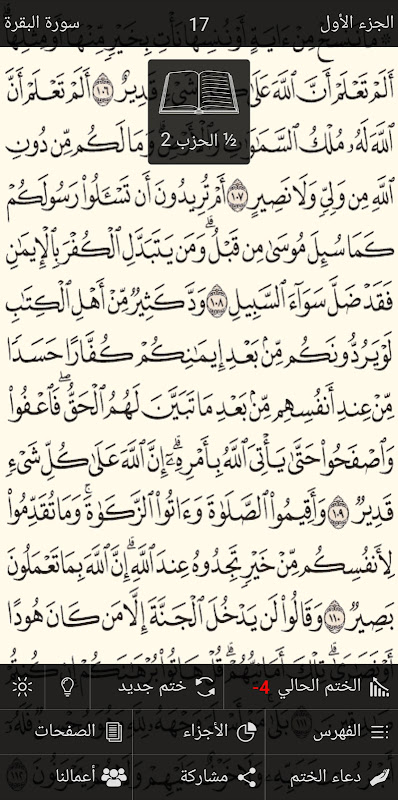 الجزء الأول
17
سورة البقرة
مَا نَنسَخْ مِنْ ءَايَةٍ أَوْ نُنسِهَا نَأْتِ بِخَيْرٍ مِّنْهَآ أَوْ مِثْلِهَآ
أَلَمْ تَعْلَمْ أَنَّ ٱللَّهَ عَلَىٰ شَىْءٍ قَدِيرٌ ١٠٦ أَلَمْ تَعْلَمْ أَنَّ
ٱللَّهَ لَهُۥ مُلْكُ ٱلسَّمَٰوَٰتِ وَٱلْأَرْضِ وَمَا لَكُم مِّن دُونِ
½ الحزب 2
ٱللَّهِ مِن وَلِىٍّ وَلَا نَصِيرٍ ١٠٧ أَمْ تُرِيدُونَ أَن تَسْـَٔلُوا۟ رَسُولَكُمْ
كَمَا سُئِلَ مُوسَىٰ مِن قَبْلُ ۗ وَمَن يَتَبَدَّلِ ٱلْكُفْرَ بِٱلْإِيمَٰنِ
فَقَدْ ضَلَّ سَوَآءَ ٱلسَّبِيلِ ١٠٨ وَدَّ كَثِيرٌ مِّنْ أَهْلِ ٱلْكِتَٰبِ
لَوْ يَرُدُّونَكُم مِّنۢ بَعْدِ إِيمَٰنِكُمْ كُفَّارًا حَسَدًا
مِّنْ عِندِ أَنفُسِهِم مِّنۢ بَعْدِ مَا تَبَيَّنَ لَهُمُ ٱلْحَقُّ ۖ فَٱعْفُوا۟
وَٱصْفَحُوا۟ حَتَّىٰ يَأْتِىَ ٱللَّهُ بِأَمْرِهِۦٓ ۗ إِنَّ ٱللَّهَ عَلَىٰ كُلِّ شَىْءٍ
قَدِيرٌ ١٠٩ وَأَقِيمُوا۟ ٱلصَّلَوٰةَ وَءَاتُوا۟ ٱلزَّكَوٰةَ ۚ وَمَا تُقَدِّمُوا۟
لِأَنفُسِكُم مِّنْ خَيْرٍ تَجِدُوهُ عِندَ ٱللَّهِ ۗ إِنَّ ٱللَّهَ بِمَا تَعْمَلُونَ
بَصِيرٌ ١١٠ وَقَالُوا۟ لَن يَدْخُلَ ٱلْجَنَّةَ إِلَّا مَن كَانَ هُودًا
الختم الحالي -4
ختم جديد
الفهرس
الأجزاء
الصفحات
دعاء الختم
مشاركة
أعمالنا